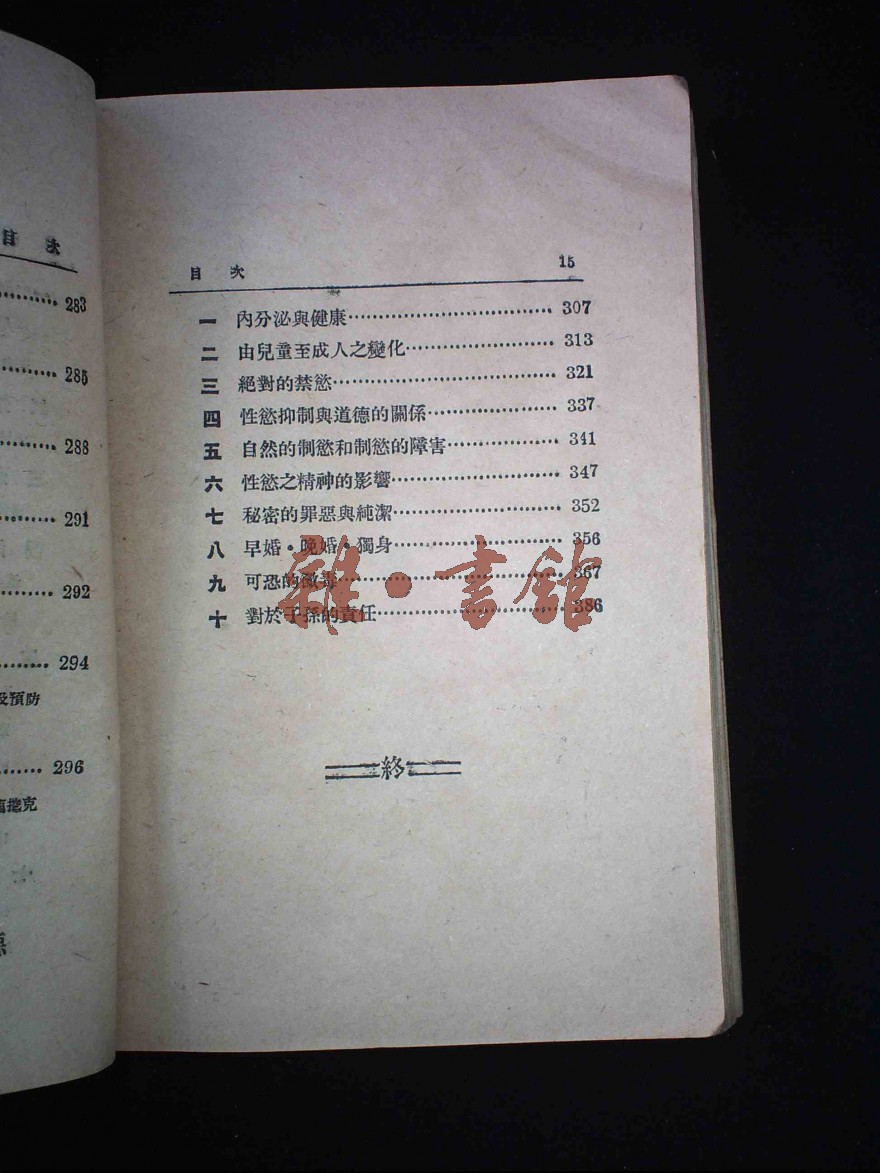 目 次
283
285
288
291
292
294
及預防
296
克
目 次 15
一 內分泌與健康 307
二 由兒童至成人之變化 313
三 絕對的禁慾 321
四 性慾抑制與道德的關係 337
五 自然的制慾和制慾的障害 341
六 性慾之精神的影響 347
七 秘密的罪惡與純潔 352
八 早婚・晚婚・獨身 356
九 可恐的黴毒 367
十 對於子孫的責任 386
雜・書館
終